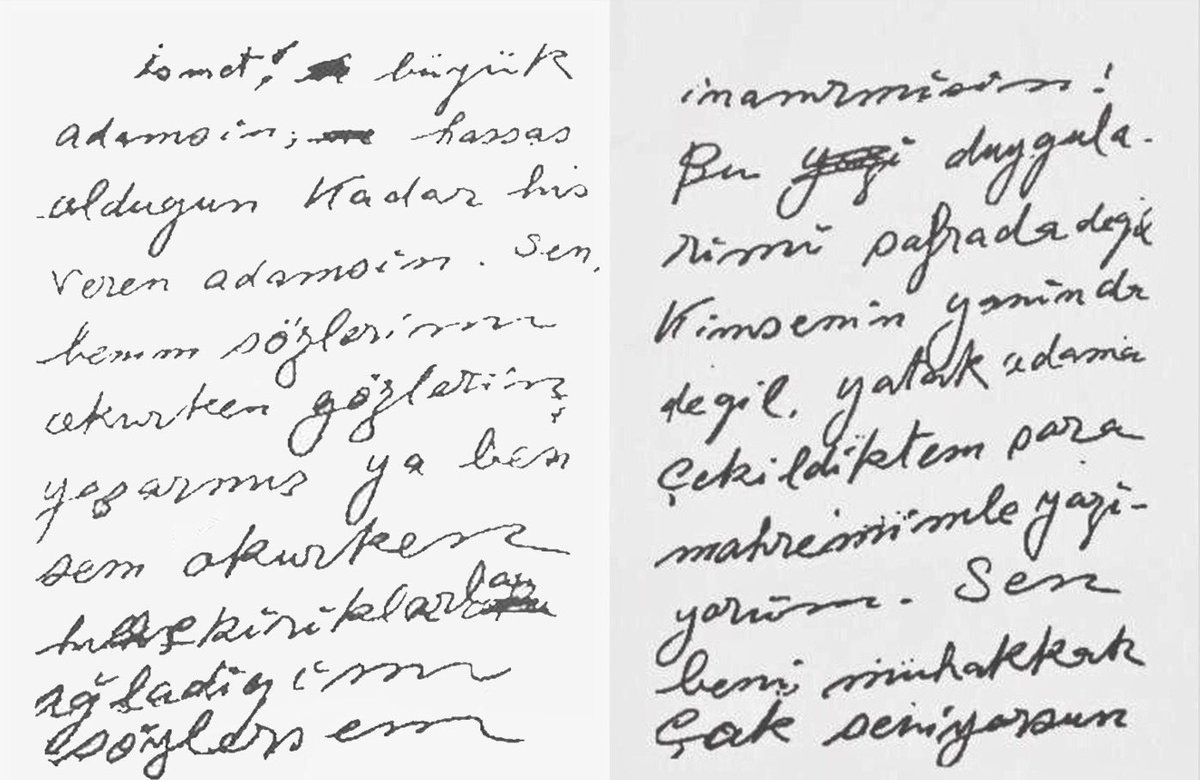 İsmet! büyük
adamsin; hassas
oldugun Kadar his
veren adamsin. Sen,
benim sözlerimi
okurken gözleriniz
yaşarmış ya ben
seni okurken
hıçkiriklarlan
ağladiğimi
söylersem
inanırmisin!
Bu yazi duygula-
rimi safrada degil
Kimsenin yaninda
degil, yatak odama
Çekildikten sora
mahremimle yazi-
yorum. Sen
beni muhakkak
Çok seviyorsun